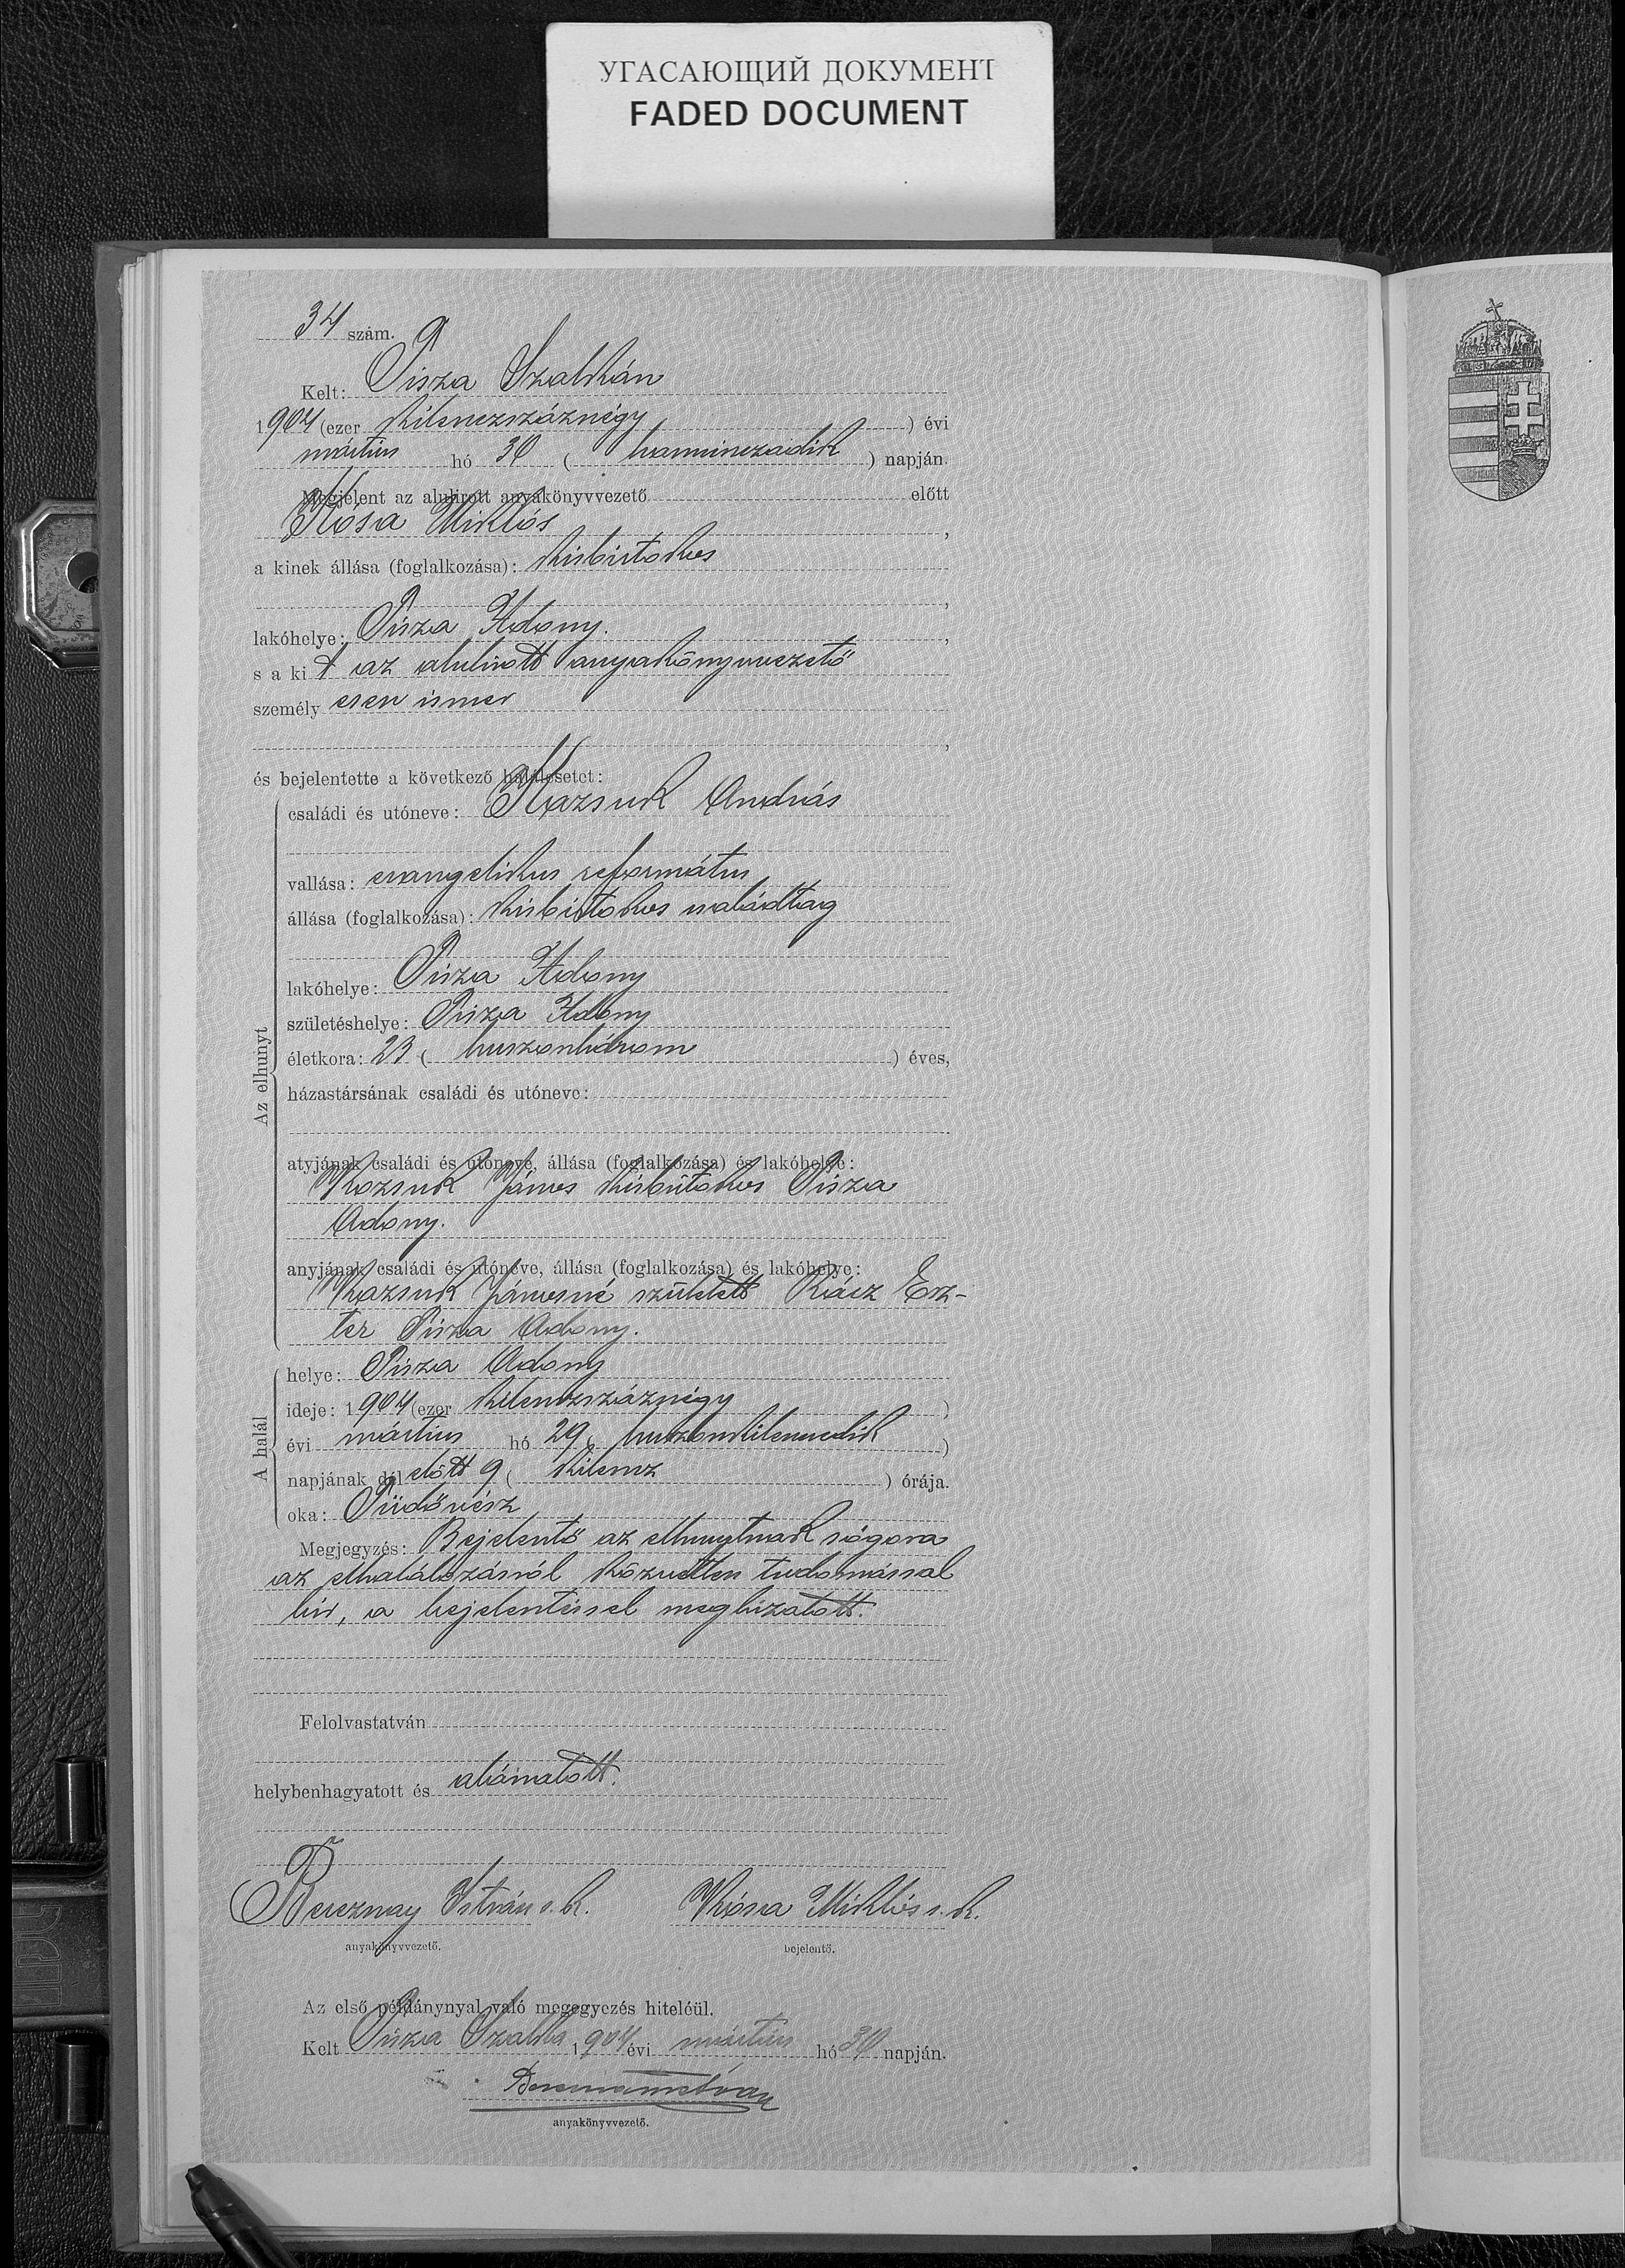 УГАСАЮЩИЙ ДОКУМЕНТ
FADED DOCUMENT
34 szám.
Kelt: Tisza Szalkán
1904 (ezer kilenczszáznégy ) évi
mártius hó 30 ( harminczadik ) napján.
Megjelent az alulirott anyakönyvvezető előtt
Kósa Miklós,
a kinek állása (foglalkozása): kisbirtokos
,
lakóhelye: Tisza Adony.,
s a kit az alulirott anyakönyvvezető
személyesen ismer
,
és bejelentette a következő halálesetet:
Az elhunyt
családi és utóneve: Kozsuk András
vallása: evangelikus református
állása (foglalkozása): kisbirtokos családtag
lakóhelye: Tisza Adony
születéshelye: Tisza Adony
életkora: 23 ( huszonhárom ) éves,
házastársának családi és utóneve:
atyjának családi és utóneve, állása (foglalkozása) és lakóhelye:
Kozsuk János kisbirtokos Tisza
Adony.
anyjának családi és utóneve, állása (foglalkozása) és lakóhelye:
Kozsuk Jánosné született Rácz Esz-
ter Tisza Adony.
A halál
helye: Tisza Adony
ideje: 1904 (ezer kilenczszáznégy )
évi mártius hó 29 ( huszonkilenczedik )
napjának dél előtt 9 ( kilencz ) órája.
oka: Tüdővész
Megjegyzés: Bejelentő az elhunytnak sógora
az elhalálozásról közvetlen tudomással
bír, a bejelentéssel megbizatott.
Felolvastatván
helybenhagyatott és aláiratott.
Bereznay István s. k. Kósa Miklós s. k.
anyakönyvvezető. bejelentő.
Az első példánynyal való megegyezés hiteléül.
Kelt Tisza Szalka 1904 évi mártius hó 30 napján.
Bereznay István
anyakönyvvezető.